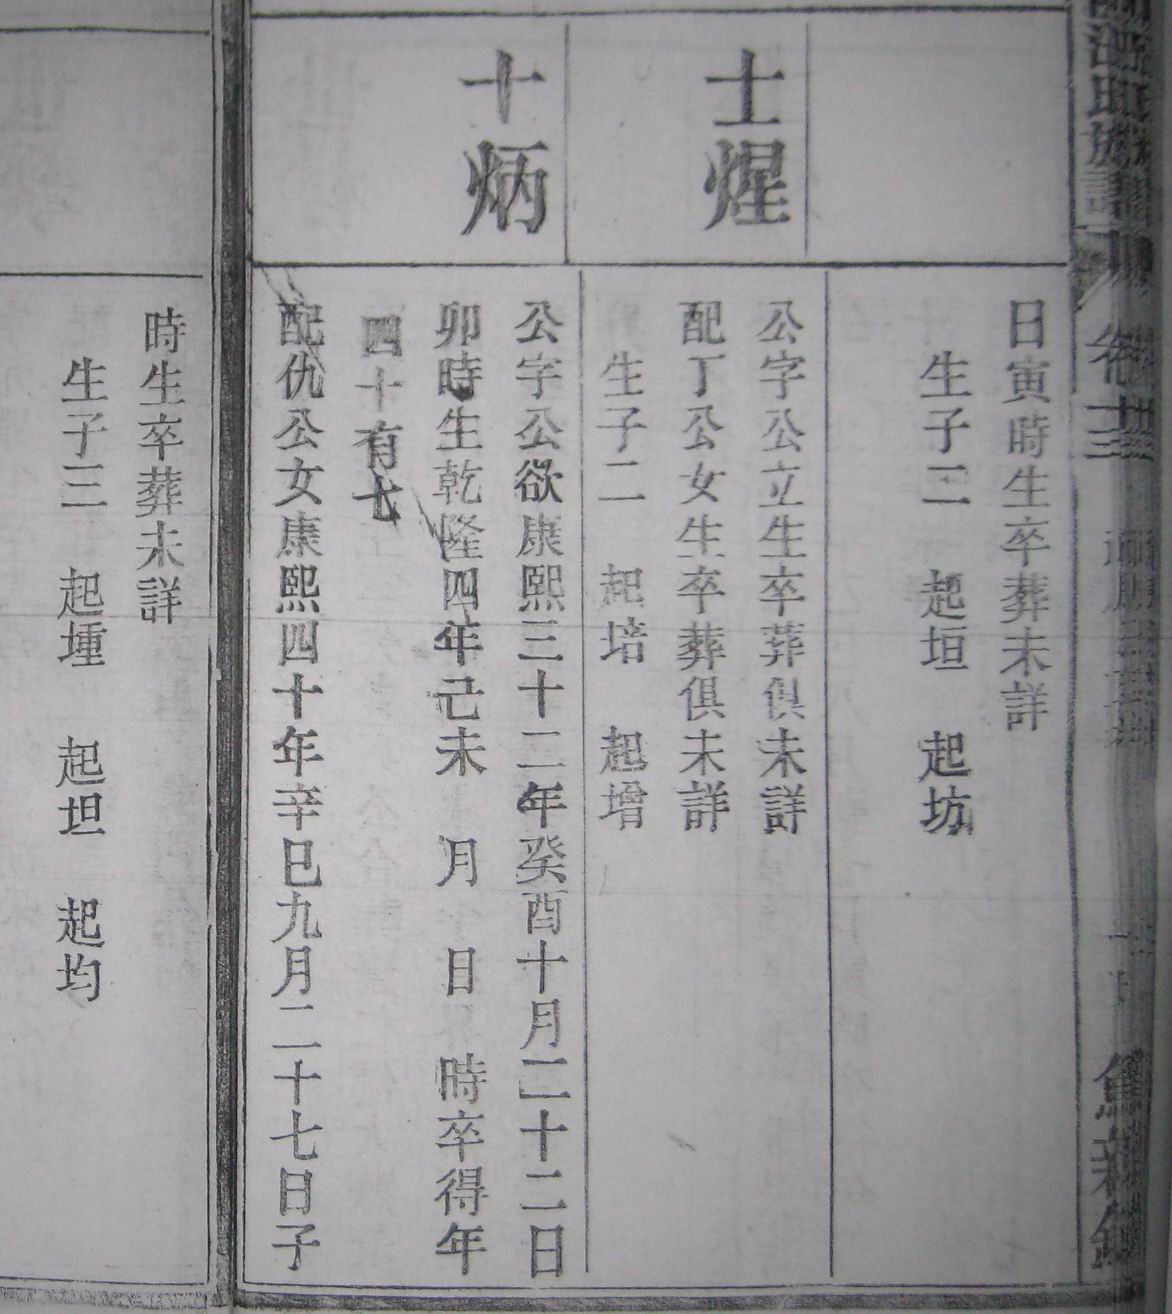 卷十三
日寅時生卒葬未詳
生子二 起垣 起坊
士煋
公字公立生卒葬俱未詳
配丁公女生卒葬俱未詳
生子二 起培 起增
十炳
公字公欲康熙三十二年癸酉十月二十二日
卯時生乾隆四年己未 月 日 時卒得年
四十有七
配仇公女康熙四十年辛巳九月二十七日子
時生卒葬未詳
生子三 起堹 起坦 起均